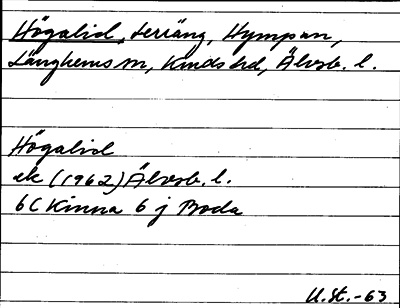 Högalid, terräng, Hympan,
Länghems sn, Kinds hd, Älvsb. l.
Högalid
ek (1962) Älvsb. l.
6C Kinna 6 j Boda
U.St.-63